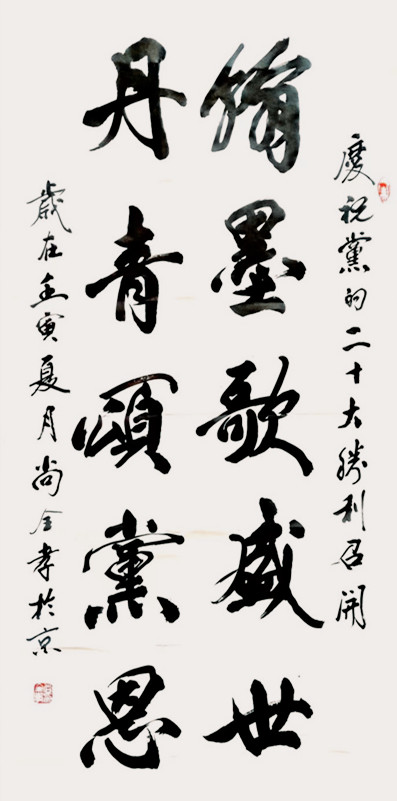 慶祝黨的二十大勝利召開
翰墨歌盛世
丹青頌黨恩
歲在壬寅夏月尚全孝於京